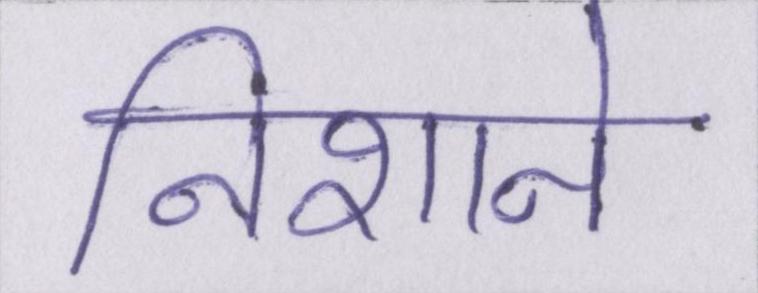 निशाने